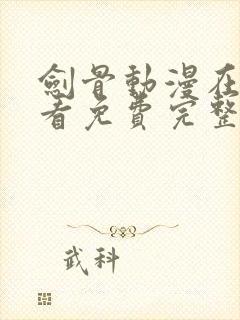 劍骨動漫在
看免費完整
武科